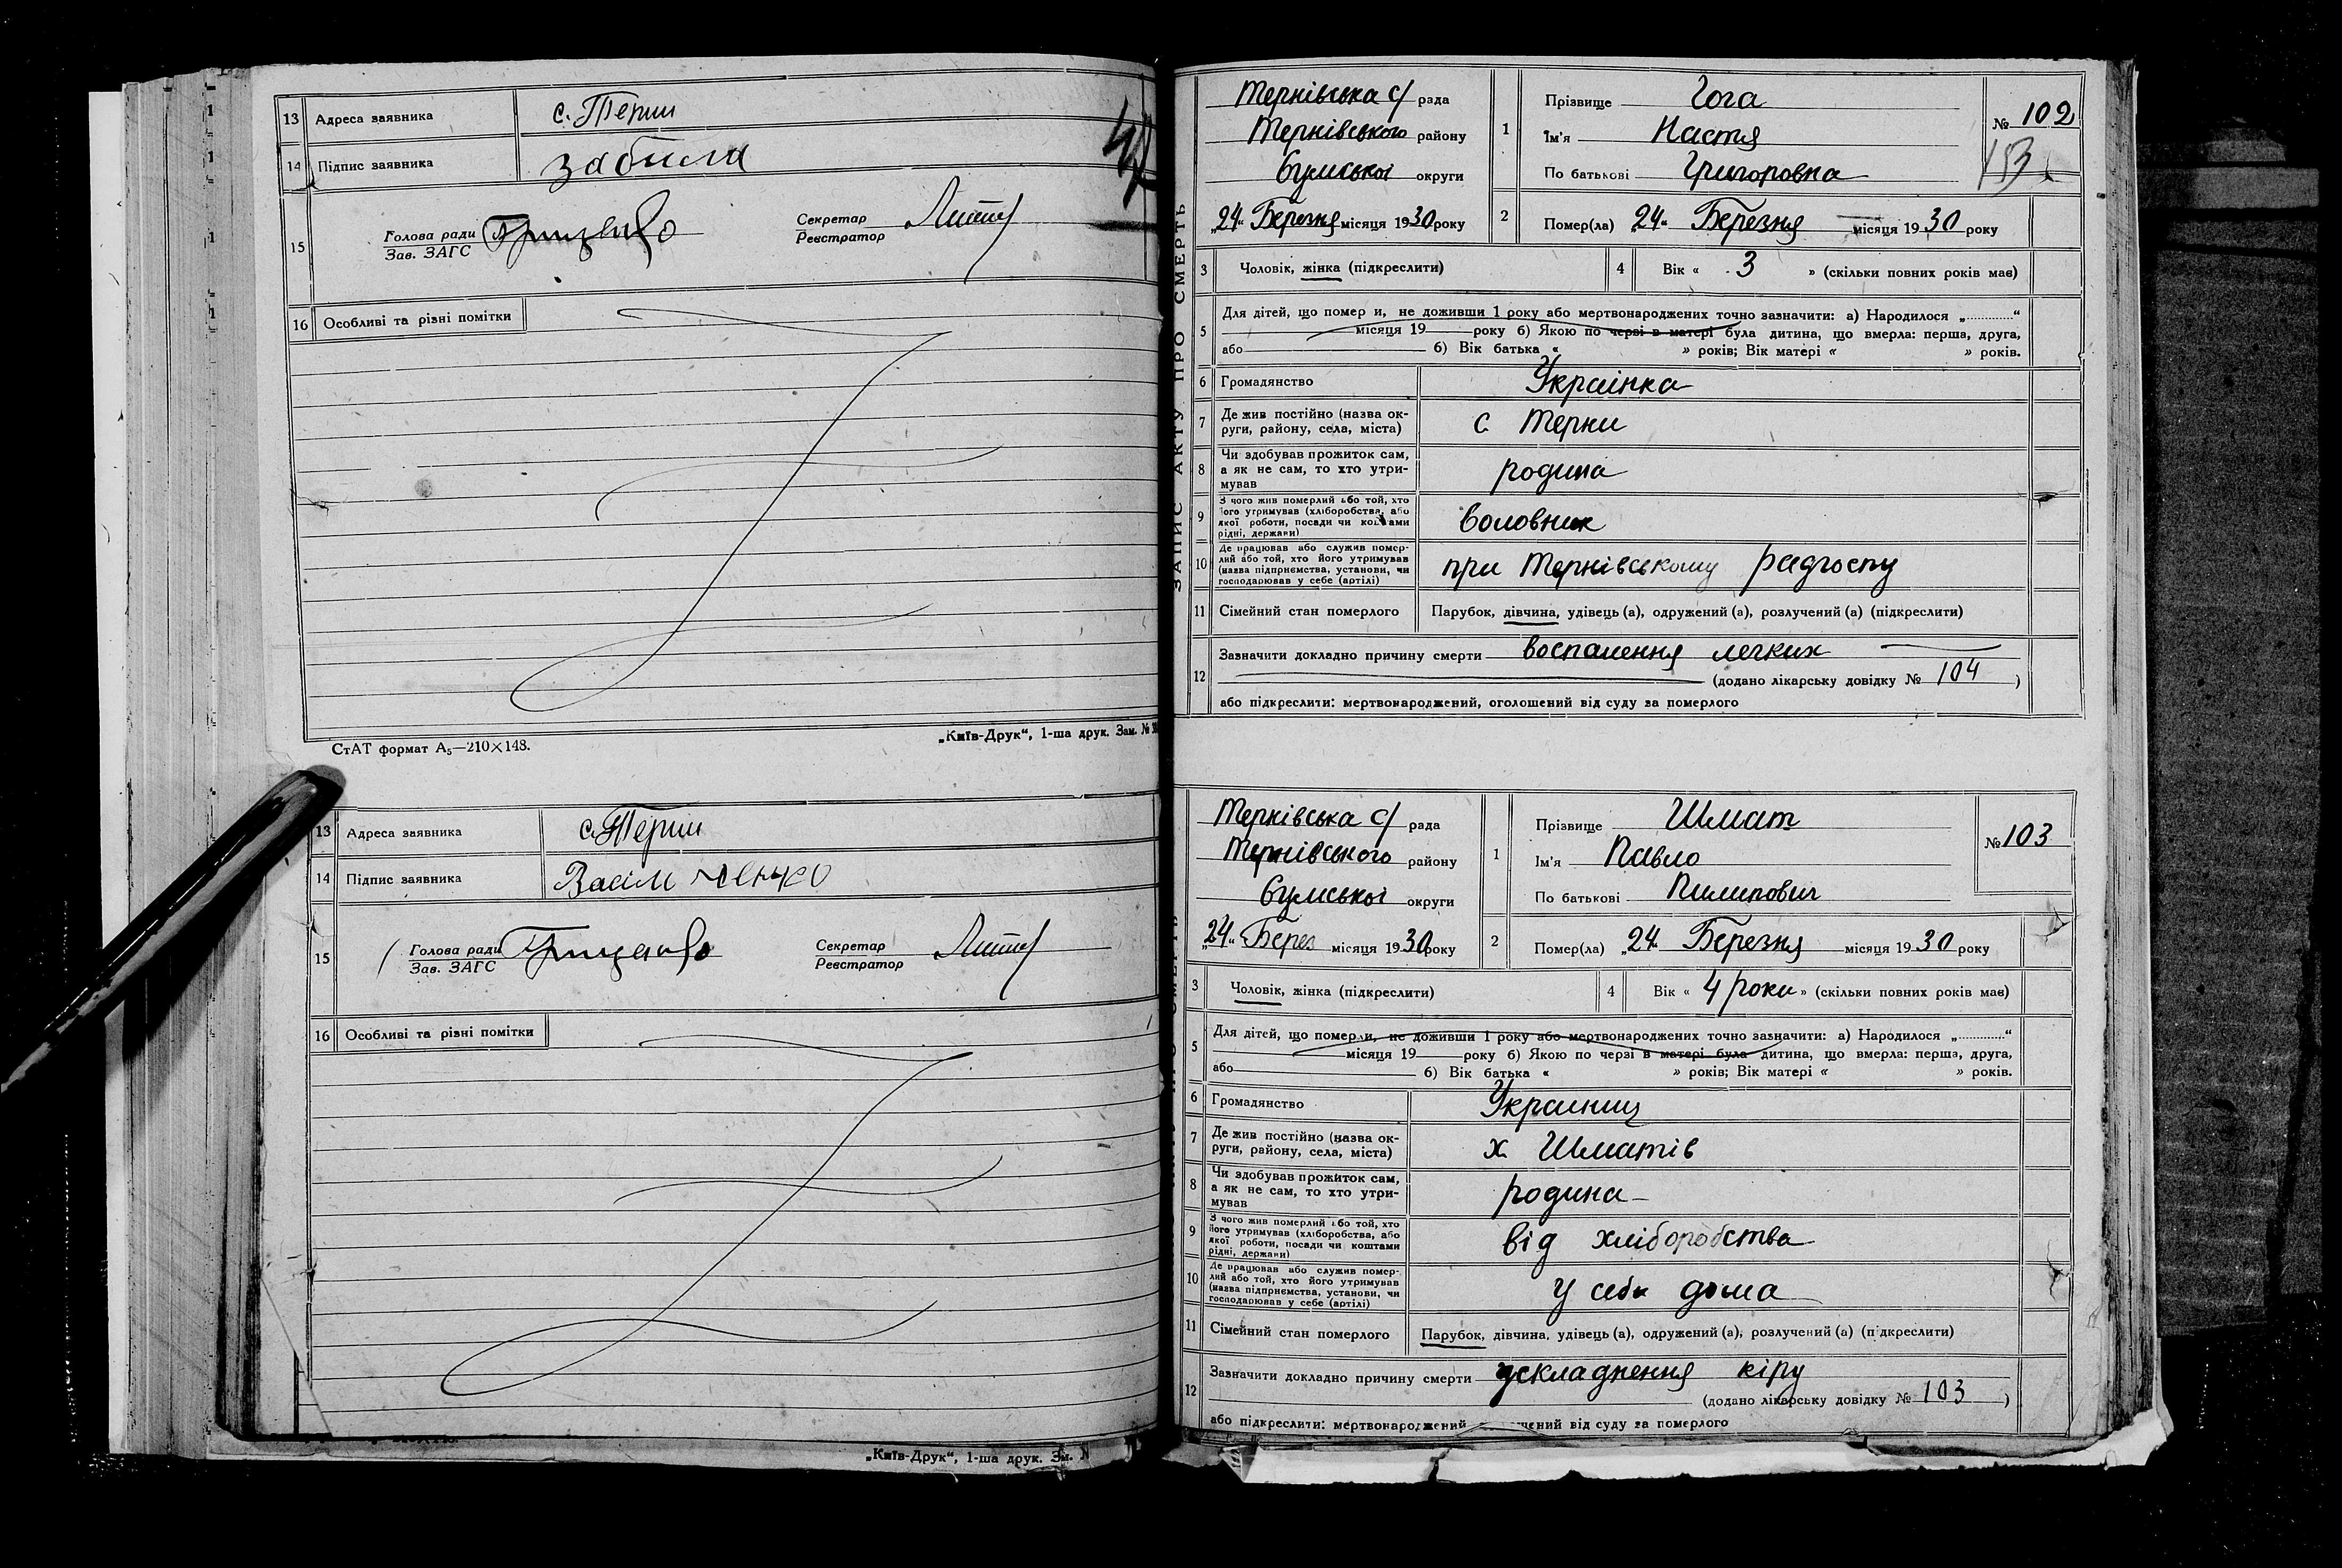 13 Адреса заявника с. Терни
14 Підпис заявника Забила
15 Голова ради Зав. ЗАГС Грищенко Секретар Реєстратор
16 Особливі та різні помітки
СтАТ формат А₅—210×148.
„Київ-Друк“, 1-ша друк. Зам. №
13 Адреса заявника с. Терни
14 Підпис заявника Васильченко
15 Голова ради Зав. ЗАГС Грищенко Секретар Реєстратор
16 Особливі та різні помітки
„Київ-Друк“, 1-ша друк. Зм. N
ЗАПИС АКТУ ПРО СМЕРТЬ
Тернівська с/ рада
Тернівського району
Сумської округи
„24“ Березня місяця 1930 року
1 Прізвище Гога
Ім'я Настя
По батькові Григоровна
№ 102
153
2 Помер(ла) 24 Березня місяця 1930 року
3 Чоловік, жінка (підкреслити)
4 Вік « 3 » (скільки повних років має)
5 Для дітей, що помер и, не доживши 1 року або мертвонароджених точно зазначити: а) Народилося „............“
місяця 19 року б) Якою по черзі в матері була дитина, що вмерла: перша, друга,
або б) Вік батька « » років; Вік матері « » років.
6 Громадянство Українка
7 Де жив постійно (назва округи, району, села, міста) с Терни
8 Чи здобував прожиток сам, а як не сам, то хто утримував родина
9 З чого жив померлий або той, хто його утримував (хліборобства, або якої роботи, посади чи коштами рідні, держави) воловник
10 Де працював або служив померлий або той, хто його утримував (назва підприємства, установи, чи господарював у себе (артілі) при Тернівському радгоспу
11 Сімейний стан померлого Парубок, дівчина, удівець (а), одружений (а), розлучений (а) (підкреслити)
12 Зазначити докладно причину смерти воспалення легких
(додано лікарську довідку № 104 )
або підкреслити: мертвонароджений, оголошений від суду за померлого
Тернівська с/ рада
Тернівського району
Сумської округи
„24“ Берез місяця 1930 року
1 Прізвище Шмат
Ім'я Павло
По батькові Пилипович
№ 103
2 Помер(ла) „24 Березня місяця 1930 року
3 Чоловік, жінка (підкреслити)
4 Вік « 4 роки » (скільки повних років має)
5 Для дітей, що померли, не доживши 1 року або мертвонароджених точно зазначити: а) Народилося „............“
місяця 19 року б) Якою по черзі в матері була дитина, що вмерла: перша, друга,
або б) Вік батька « » років; Вік матері « » років.
6 Громадянство Украиниц
7 Де жив постійно (назва округи, району, села, міста) х Шматів
8 Чи здобував прожиток сам, а як не сам, то хто утримував родина
9 З чого жив померлий або той, хто його утримував (хліборобства, або якої роботи, посади чи коштами рідні, держави) від хліборобства
10 Де працював або служив померлий або той, хто його утримував (назва підприємства, установи, чи господарював у себе (артілі) у себе дома
11 Сімейний стан померлого Парубок, дівчина, удівець (а), одружений (а), розлучений (а) (підкреслити)
12 Зазначити докладно причину смерти ускладнення кіру
(додано лікарську довідку № 103 )
або підкреслити: мертвонароджений від суду за померлого